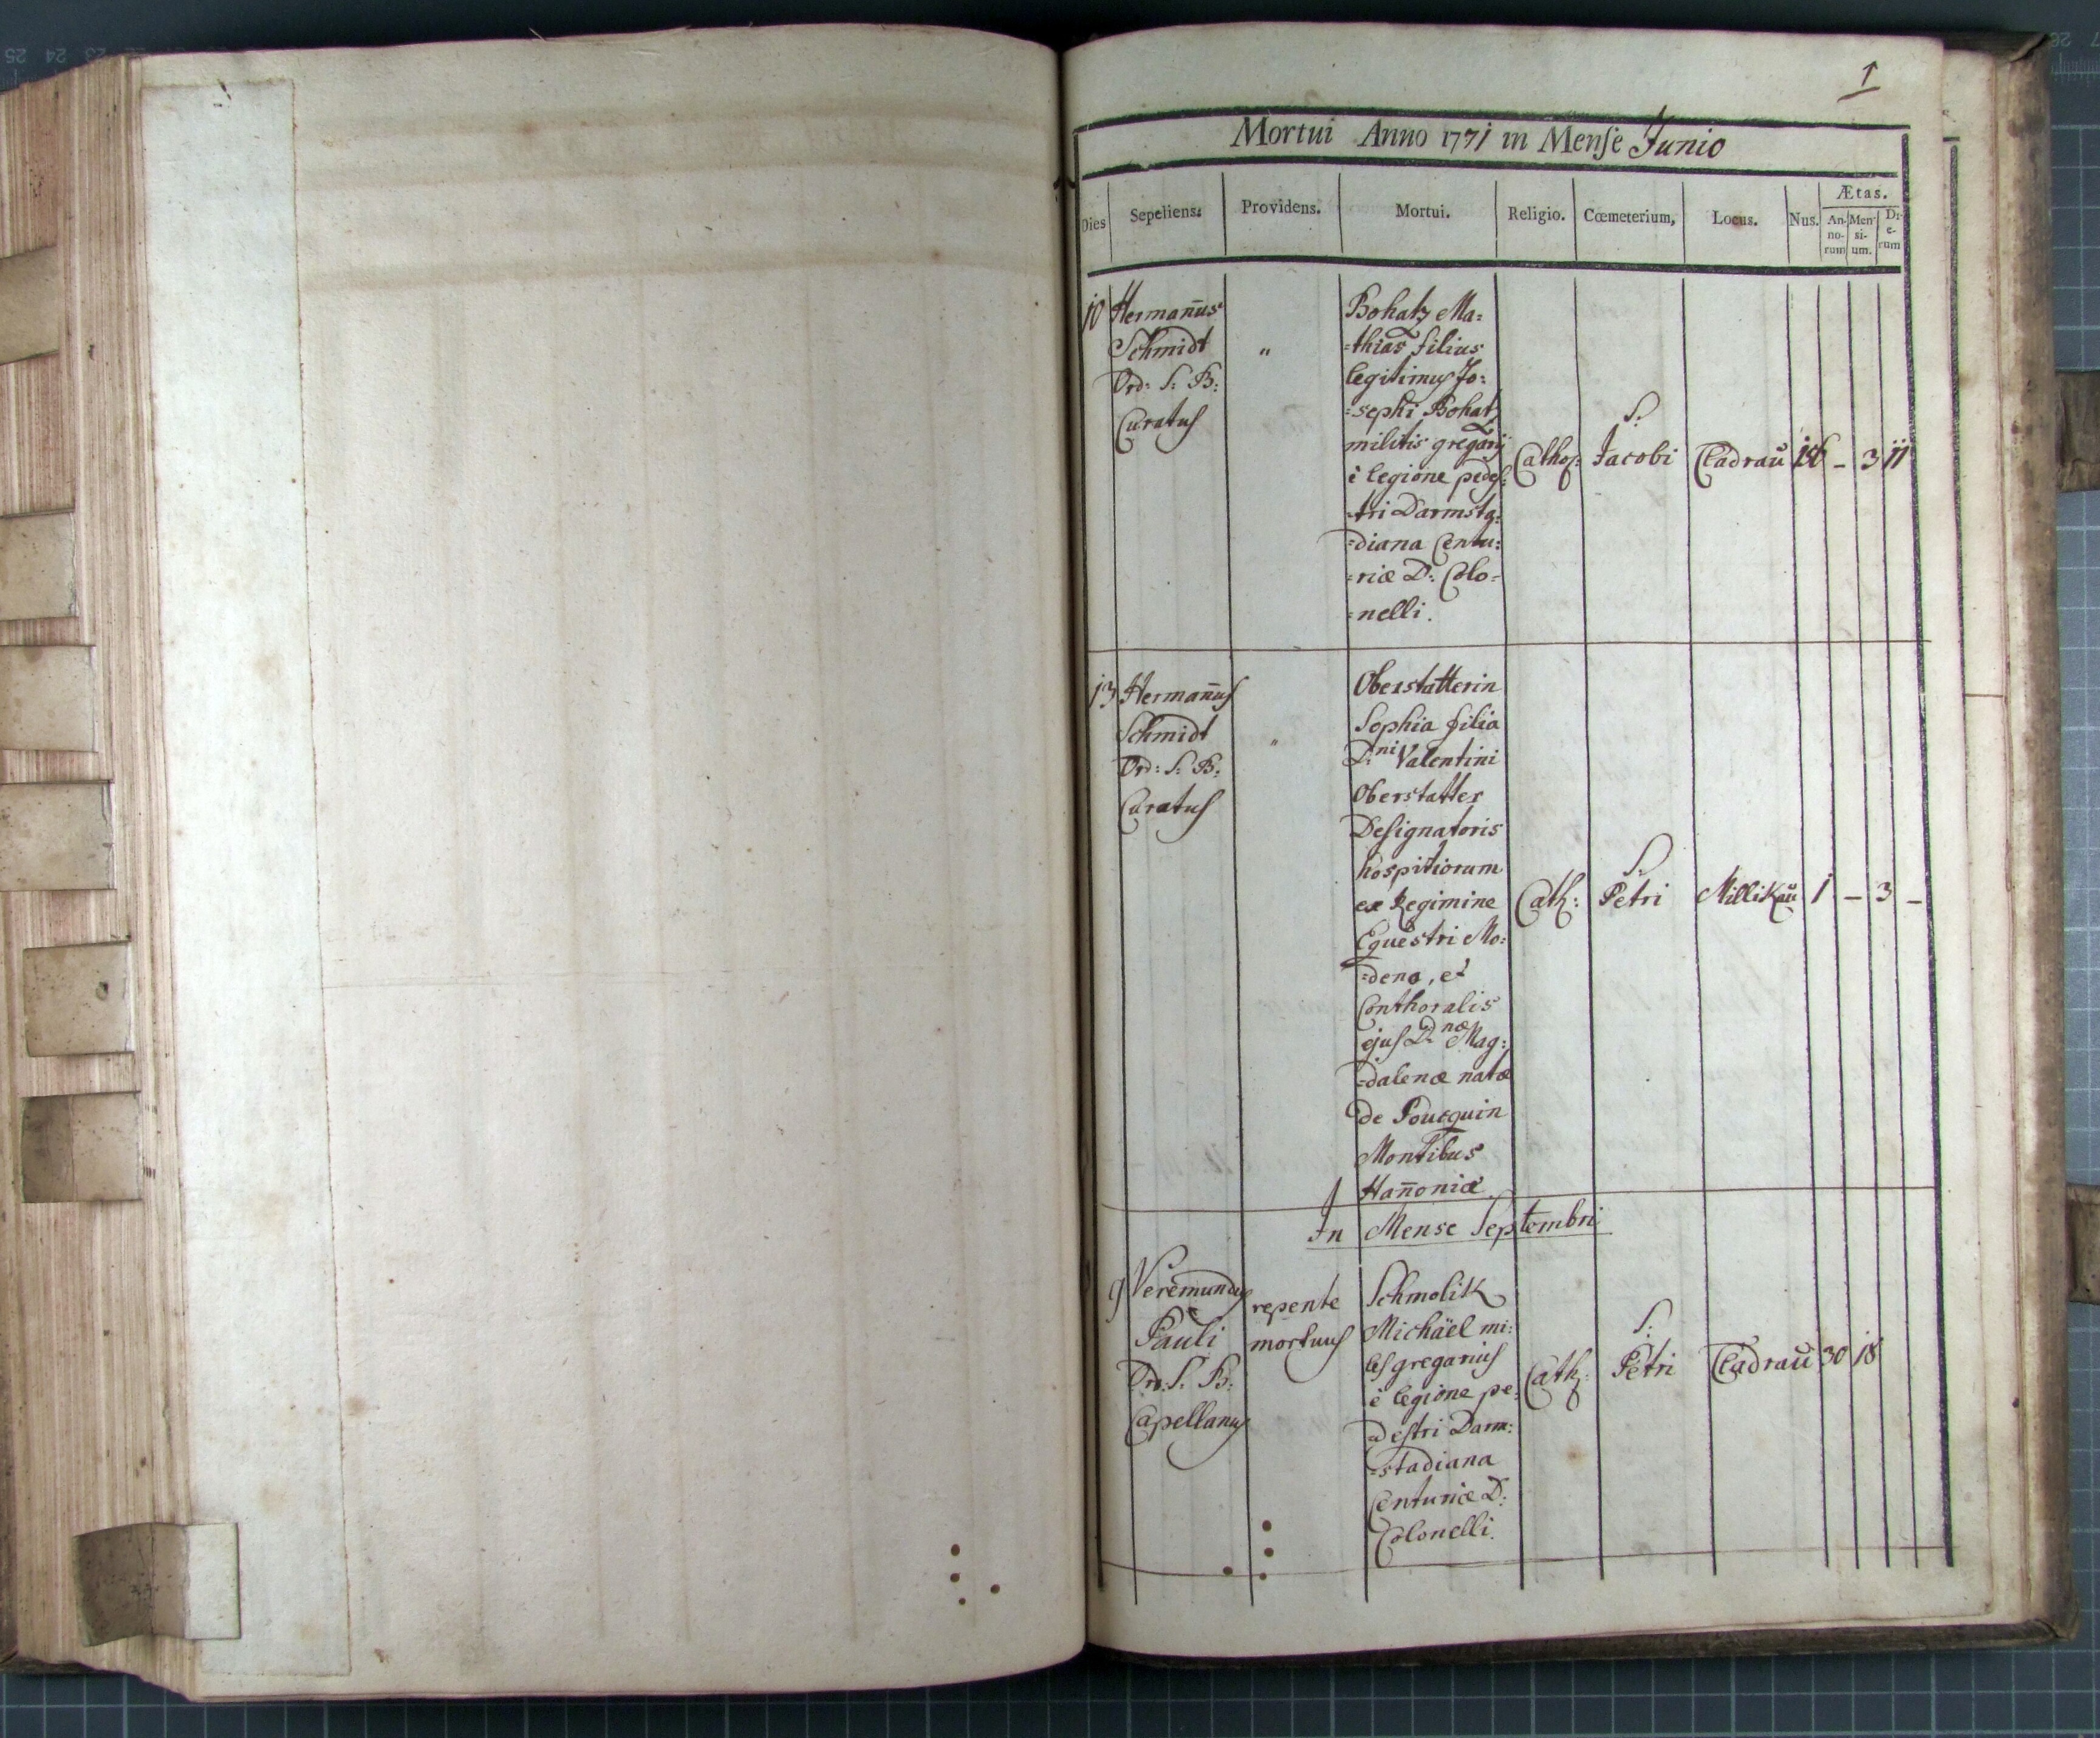 1
Mortui Anno 1771 in Mense Junio
Dies Sepeliens. Providens. Mortui. Religio. Cœmeterium, Locus. Nus. Ætas.
An-no-rum Men-si-um. Di-e-rum
10
Hermañus
Schmidt
Ord: S: B:
Curatus
"
Bohatz Ma=
=thias filius
legitimus Jo:
=sephi Bohatz
militis gregarij
è legione pedes:
tri Darmsta:
=diana Centu:
=riæ D: Colo=
=nelli.
Cathol:
S:
Jacobi
Cladrau
–
3
11
13
Hermañus
Schmidt
Ord: S: B:
Curatus
"
Oberstatterin
Sophia filia
D:ni Valentini
Oberstatter
Designatoris
hospitiorum
ex Regimine
Equestri Mo:
=deno, et
Conthoralis
ejus D:næ Mag:
=dalenæ natæ
de Fourquin
Montibus
Hañoniæ
Cath:
S:
Petri
Millikau
1
–
3
–
In Mense Septembri
9
Veremundus
Pauli
Ord: S: B:
Capellanus
repente
mortuus
Schmolik
Michäel mi:
les gregarius
è legione pe:
destri Darm:
=stadiana
Centuriæ D:
Colonelli.
Cath:
S:
Petri
Cladrau
30
18